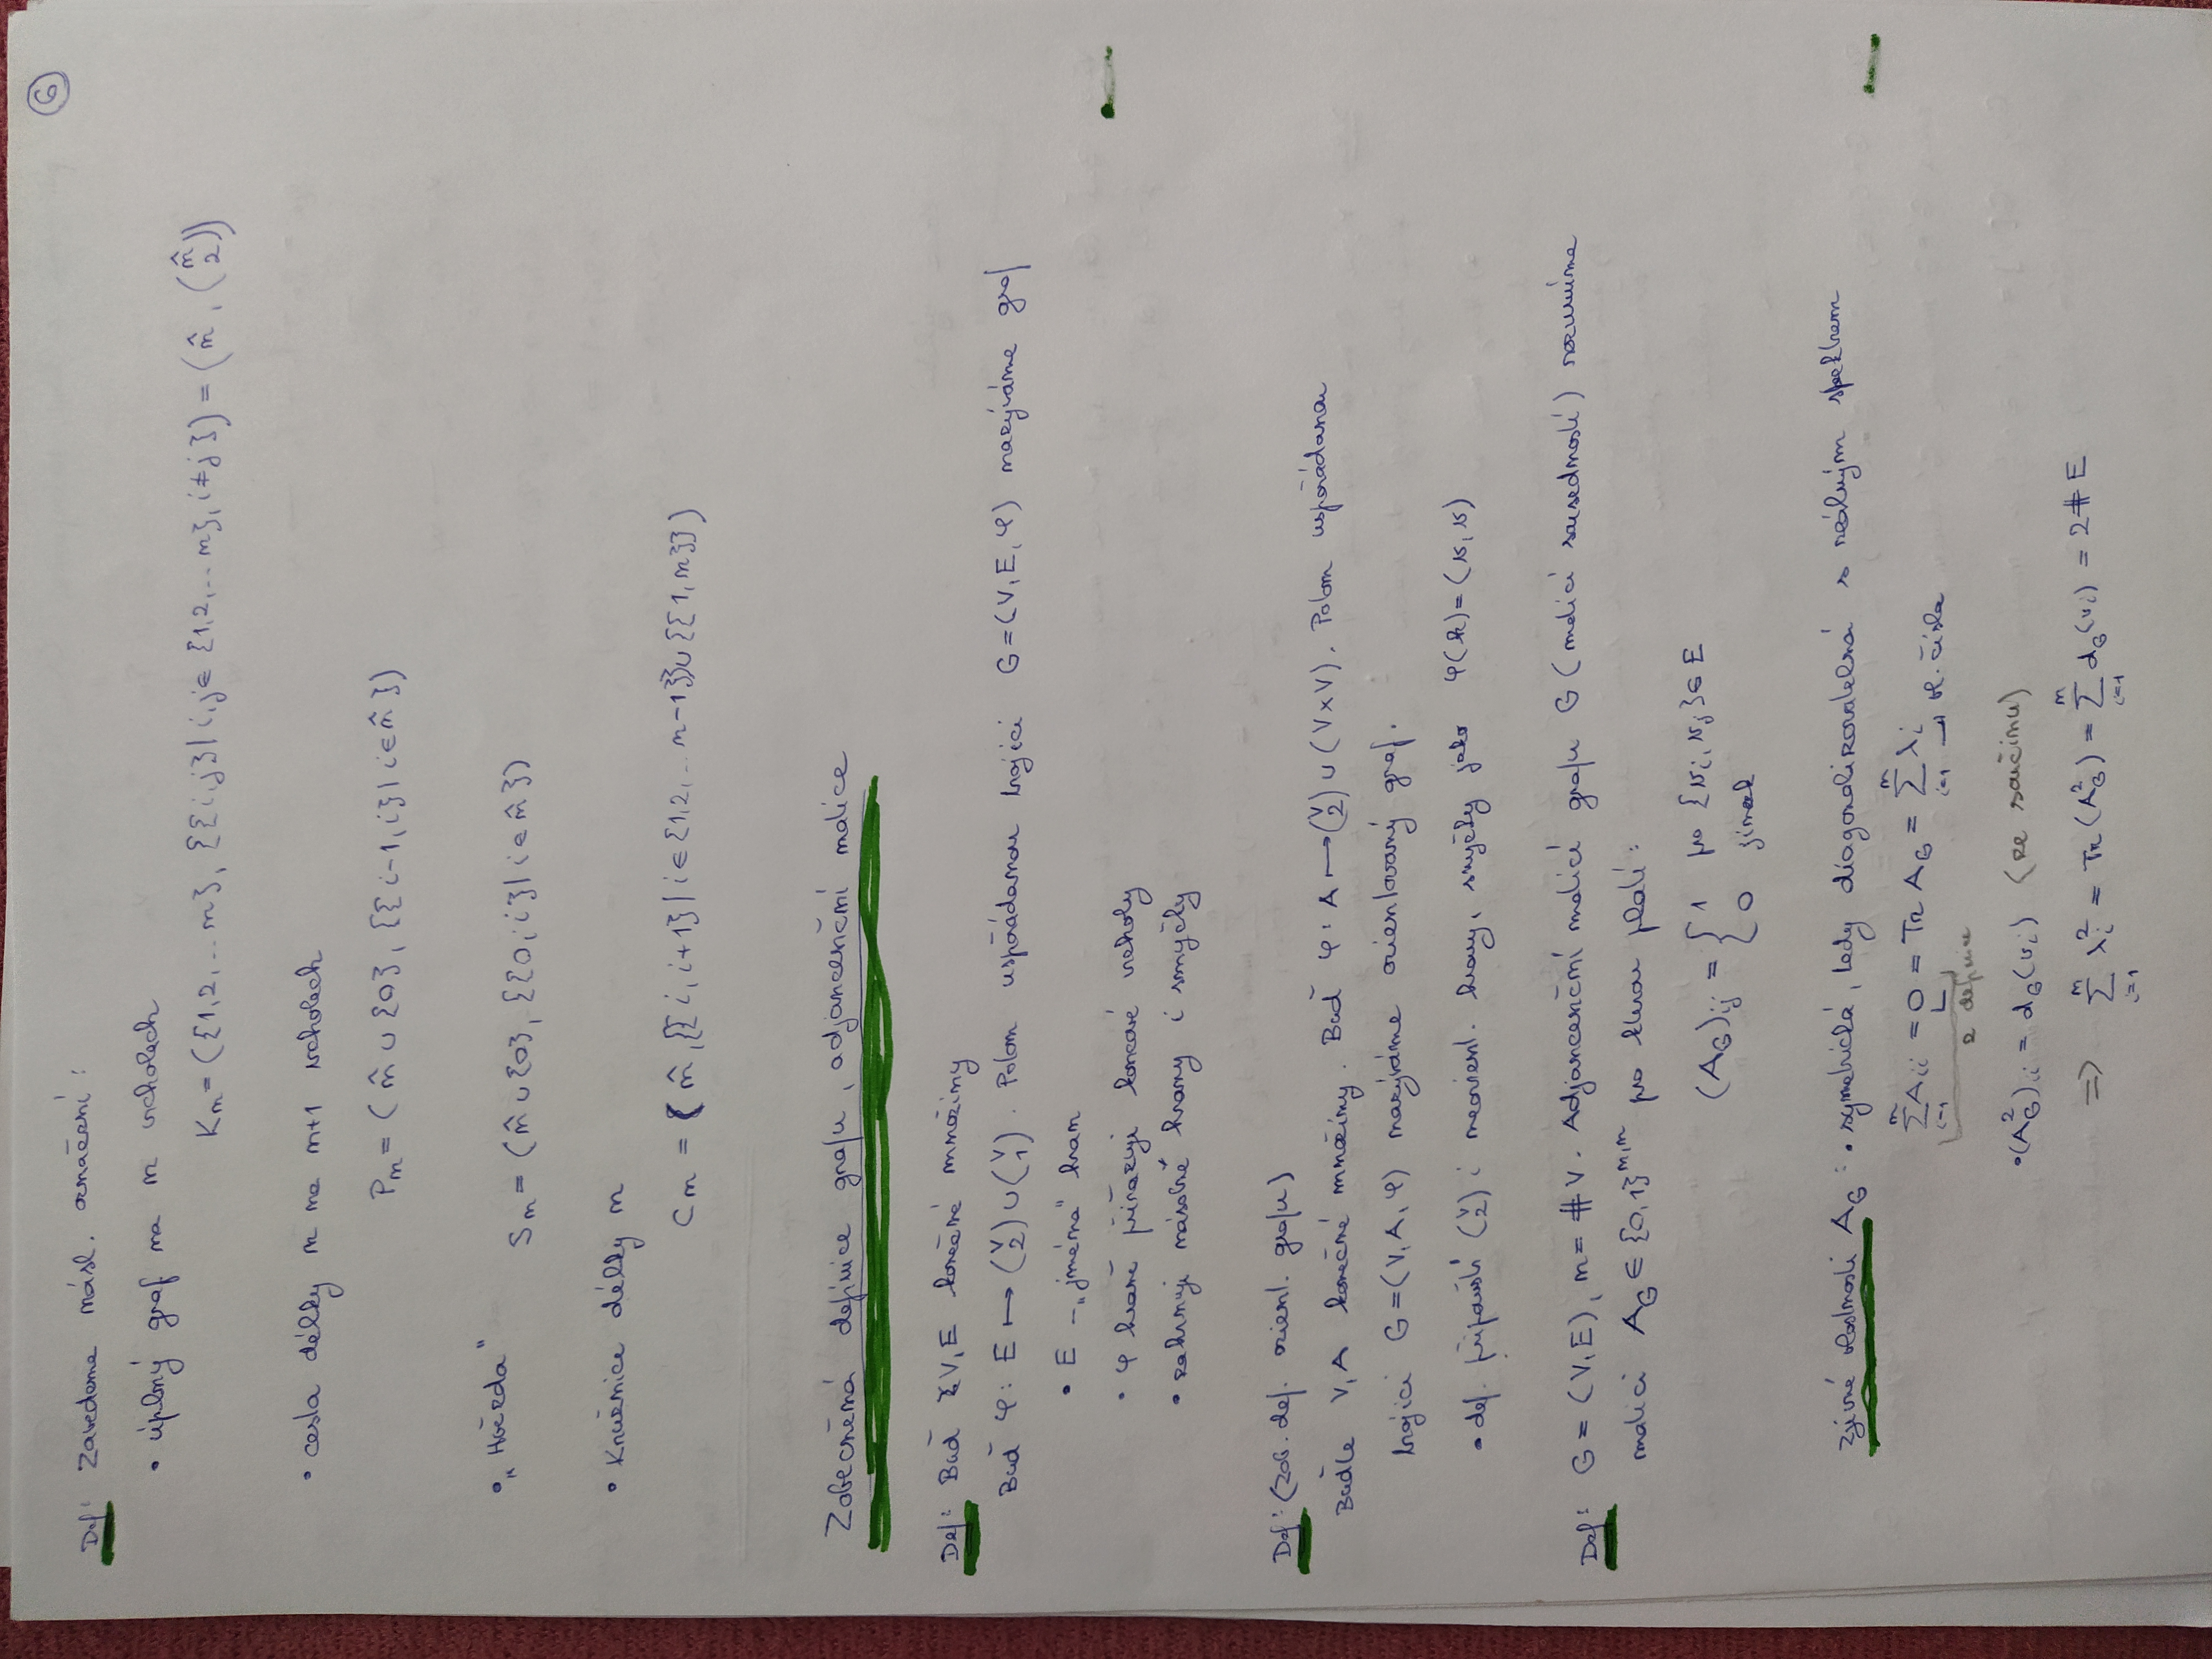 6
Def: Zavedeme násl. označení:
• úplný graf na n vrcholech
Kn = ({1,2,...n}, {{i,j}| i,j ∈ {1,2,...n}, i≠j}) = (n̂, (n̂ 2))
• cesta délky n na n+1 vrcholech
Pn = (n̂ ∪ {0}, {{i-1,i}| i∈n̂})
• „Hvězda"
Sn = (n̂ ∪ {0}, {{0,i}| i∈n̂})
• Kružnice délky n
Cn = (n̂, {{i,i+1}| i∈{1,2,...n-1}} ∪ {{1,n}})
Zobecněná definice grafu, adjacenční matice
Def: Buď V,E konečné množiny
Buď φ: E ↦ (V 2) ∪ (V 1). Potom uspořádanou trojici G=(V,E,φ) nazýváme graf
• E – „jména" hran
• φ hraně přiřazuje koncové vrcholy
• zahrnuje násobné hrany i smyčky
Def: (zob. def. orient. grafu)
Buďte V,A konečné množiny. Buď φ: A ↦ (V 2) ∪ (V×V). Potom uspořádanou
trojici G=(V,A,φ) nazýváme orientovaný graf.
• def. připouští (V 2) i neorient. hrany, smyčky jako φ(h)=(v,v)
Def: G=(V,E), n=#V. Adjancenční maticí grafu G (maticí sousednosti) rozumíme
matici A_G ∈ {0,1}^{n,n} pro kterou platí:
(A_G)_ij = { 1 pro {v_i,v_j}∈E
0 jinak
Zjevné vlastnosti A_G: • symetrická, tedy diagonalizovatelná s reálným spektrem
∑_{i=1}^n A_ii = 0 = Tr A_G = ∑_{i=1}^n λ_i → vl. čísla
z definice
• (A_G^2)_ii = d_G(v_i) (ze součinu)
⇒ ∑_{i=1}^n λ_i^2 = Tr(A_G^2) = ∑_{i=1}^n d_G(v_i) = 2#E